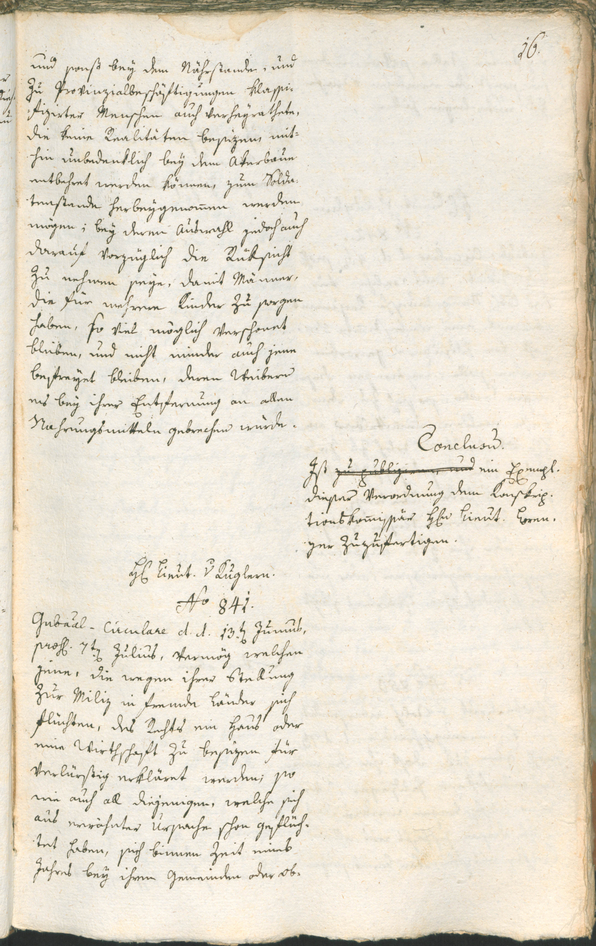 16.
und sonst bey dem Nährstande, und
zu Provinzialbeschäftigungen klassi-
fizirter Menschen auch verheyrathete,
die keine Realitäten besizen, mit-
hin unbedenklich bey dem Akerbaue
entbehret werden können, zum Solda-
tenstande herbeygenommen werden
mögen; bey deren Auswahl jedoch auch
darauf vorzüglich die Rüksicht
zu nehmen seye, damit Männer,
die für mehrere Kinder zu sorgen
haben, so viel möglich verschonet
bleiben, und nicht minder auch jene
befreyet bleiben, deren Weibern
es bey ihrer Entfernung an allen
Nahrungsmitteln gebrechen würde.
Conclusu.
Ist zu publiziren, und ein Exempl.
dieser Verordnung dem Konskrip-
tionskommissär H Lieut. Loren-
zer zuzufertigen.
H Lieut. v Kuglern.
No 841.
Gubal-Circulare d. d. 13.t Junius,
pross. 7t Julius, vermög welchen
jene, die wegen ihrer Stellung
zur Miliz in fremde Länder sich
flüchten, des Rechts ein Haus oder
eine Wirthschaft zu besizen für
verlürstig erkläret werden; so
wie auch all diejenigen, welche sich
aus erwähnter Ursache schon geflüch-
tet haben, sich binnen Zeit eines
Jahres bey ihren Gemeinden oder Ob-